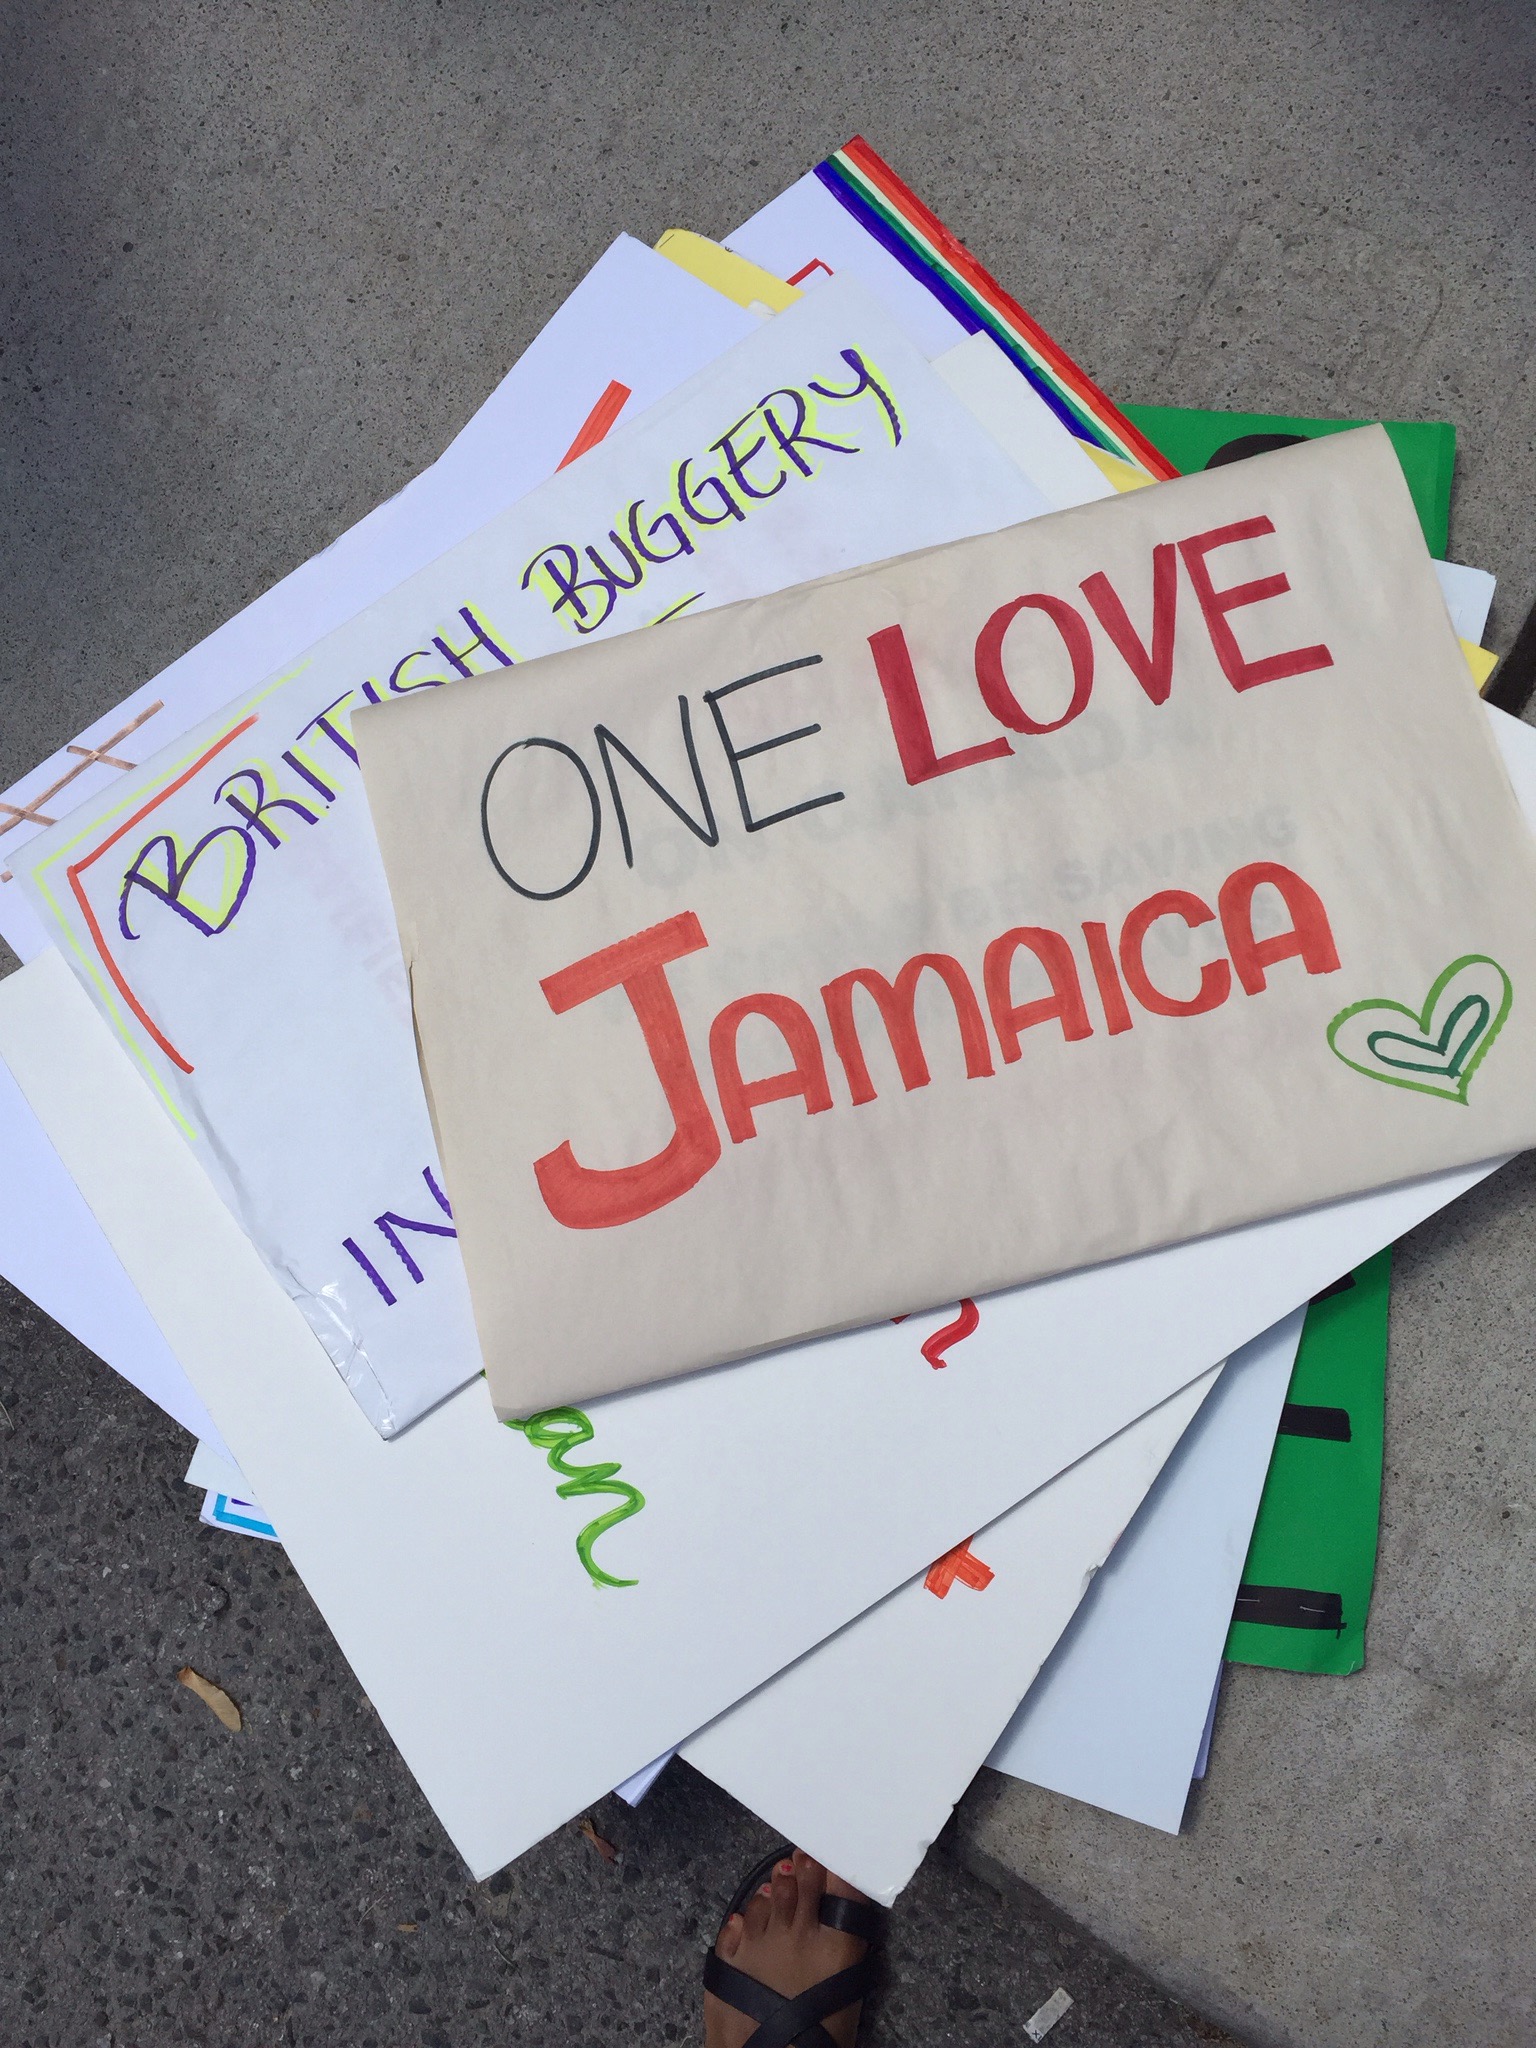 ONE LOVE
JAMAICA
BRITISH BUGGERY
IN
an